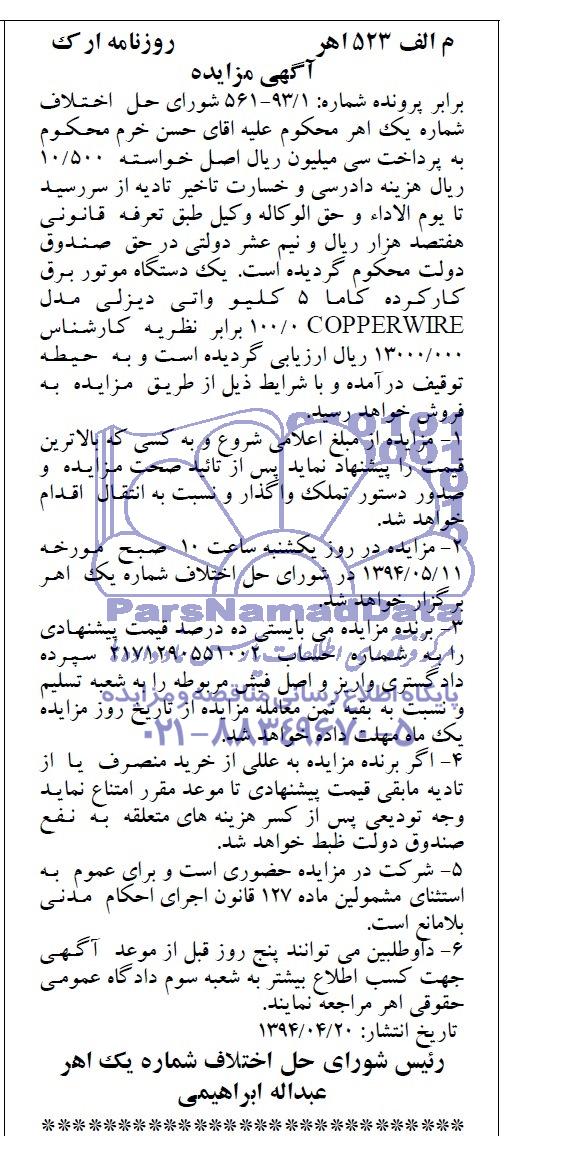 م الف ۵۲۳ اهر روزنامه ارک
آگهی مزایده
برابر پرونده شماره: ۹۳/۱-۵۶۱ شورای حل اختلاف
شماره یک اهر محکوم علیه اقای حسن خرم محکوم
به پرداخت سی میلیون ریال اصل خواسته ۱۰/۵۰۰
ریال هزینه دادرسی و خسارت تاخیر تادیه از سررسید
تا یوم الاداء و حق الوکاله وکیل طبق تعرفه قانونی
هفتصد هزار ریال و نیم عشر دولتی در حق صندوق
دولت محکوم گردیده است. یک دستگاه موتور برق
کارکرده کاما ۵ کلیو واتی دیزلی مدل
COPPERWIRE ۱۰۰/۰ برابر نظریه کارشناس
۱۳۰۰۰/۰۰۰ ریال ارزیابی گردیده است و به حیطه
توقیف درآمده و با شرایط ذیل از طریق مزایده به
فروش خواهد رسید.
۱- مزایده از مبلغ اعلامی شروع و به کسی که بالاترین
قیمت را پیشنهاد نماید پس از تائید صحت مزایده و
صدور دستور تملک واگذار و نسبت به انتقال اقدام
خواهد شد.
۲- مزایده در روز یکشنبه ساعت ۱۰ صبح مورخه
۱۳۹۴/۰۵/۱۱ در شورای حل اختلاف شماره یک اهر
برگزار خواهد شد.
ParsNamadData
۳- برنده مزایده می بایستی ده درصد قیمت پیشنهادی
را به شماره حساب ۲۱۷۱۲۹۰۵۵۱۰۰۲ سپرده
دادگستری واریز و اصل فیش مربوطه را به شعبه تسلیم
پایگاه اطلاع رسانی مناقصه و مزایده
و نسبت به بقیه ثمن معامله مزایده از تاریخ روز مزایده
یک ماه مهلت داده خواهد شد.
۰۲۱-۸۸۳۴۹۶۷۰-۵
۴- اگر برنده مزایده به عللی از خرید منصرف یا از
تادیه مابقی قیمت پیشنهادی تا موعد مقرر امتناع نماید
وجه تودیعی پس از کسر هزینه های متعلقه به نفع
صندوق دولت ظبط خواهد شد.
۵- شرکت در مزایده حضوری است و برای عموم به
استثنای مشمولین ماده ۱۲۷ قانون اجرای احکام مدنی
بلامانع است.
۶- داوطلبین می توانند پنج روز قبل از موعد آگهی
جهت کسب اطلاع بیشتر به شعبه سوم دادگاه عمومی
حقوقی اهر مراجعه نمایند.
تاریخ انتشار: ۱۳۹۴/۰۴/۲۰
رئیس شورای حل اختلاف شماره یک اهر
عبداله ابراهیمی